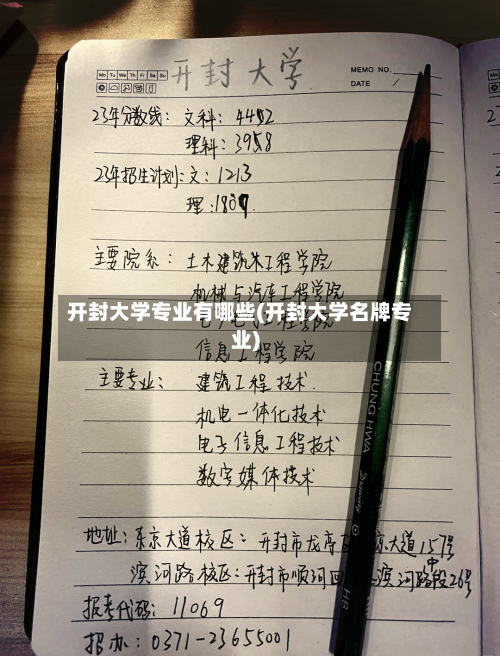 Mo Tu We Th Fr Sa Su
开封大学
MEMO NO.
DATE /
23年分数线：文科：4452
理科：3958
23年招生计划：文：1213
理：180
主要院系：土木建筑工程学院
机械与汽车工程学院
开封大学专业有哪些(开封大学名牌专
业)
信息工程学院
主要专业：建筑工程技术
机电一体化技术
电子信息工程技术
数字媒体技术
地址：东京大道校区：开封市龙亭区 大道157号
滨河路校区：开封市顺河回 滨河路中段26号
报考代码：11069
招办：0371-23655001
CHUNG HWA
Drawing
HB